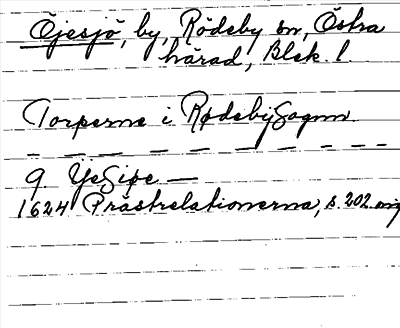 Öjesjö, by, Rödeby sn, Östra
härad, Blek. l.
Torperne i RødebÿSognn.
9. YeSiøe —
1624 Prästrelationerna, s. 202